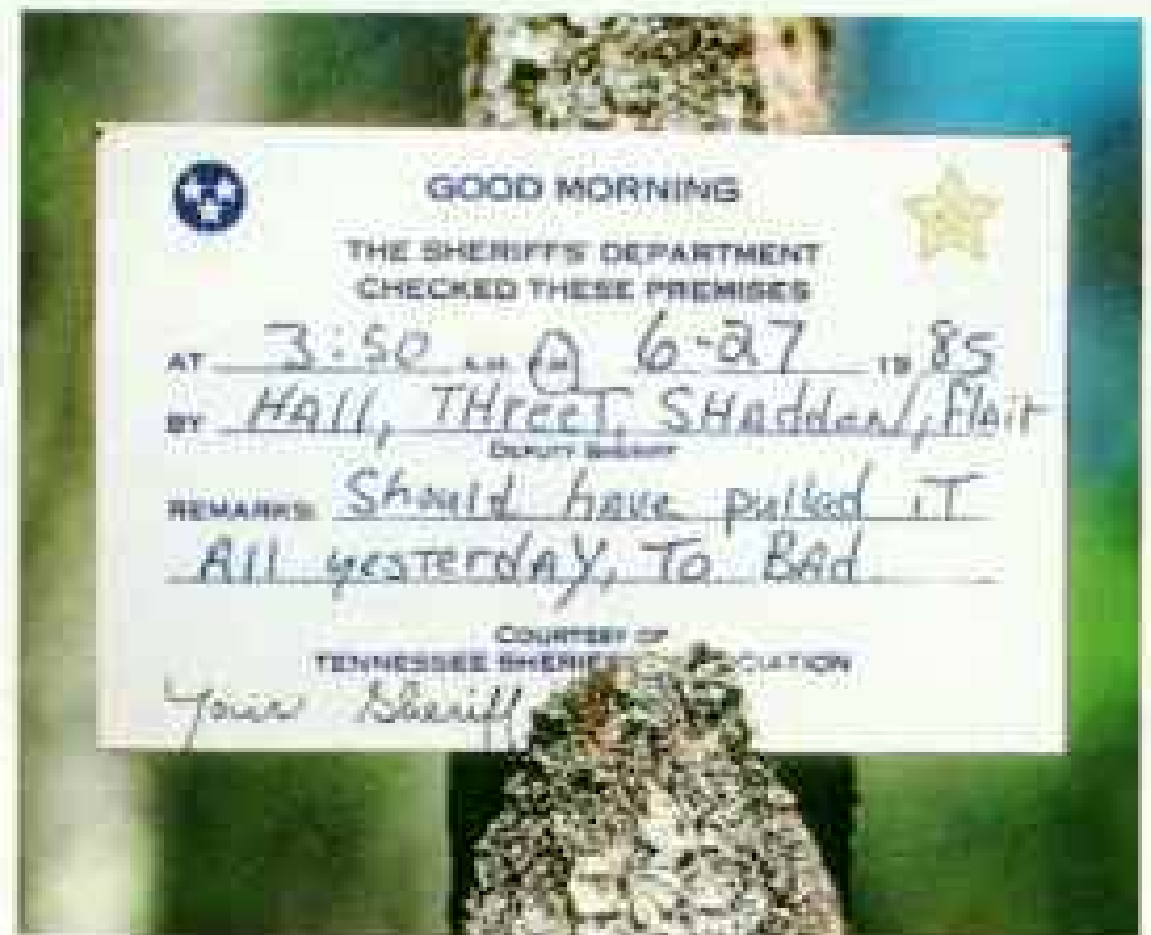 GOOD MORNING
THE SHERIFFS' DEPARTMENT
CHECKED THESE PREMISES
AT 3:50 A.M. P.M. 6-27 19 85
BY HAll, THreeT, SHAdden,
DEPUTY SHERIFF
REMARKS: Should have pulled iT
All yesTerdAy, To BAd
COURTESY OF
TENNESSEE
Your Sheriff